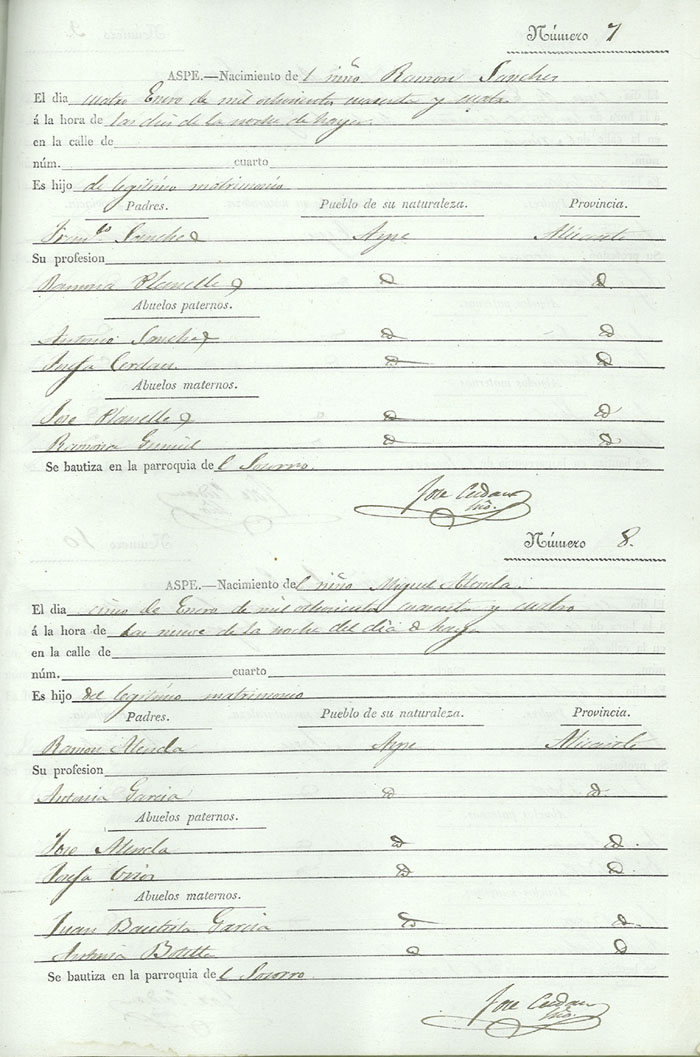 Número 7
ASPE.—Nacimiento del niño Ramon Sanchez
El dia cuatro Enero de mil ochocientos cuarenta y cuatro
á la hora de las dies de la noche de hayer
en la calle de
núm. cuarto
Es hijo de legitimo matrimonio
Padres. Pueblo de su naturaleza. Provincia.
Franco. Sanchez Aspe Alicante
Su profesion
Ramona Planelles id id
Abuelos paternos.
Antonio Sanchez id id
Josefa Cerdan id id
Abuelos maternos.
Jose Planelles id id
Ramona id id
Se bautiza en la parroquia del Socorro
Jose Cerdan
Número 8.
ASPE.—Nacimiento del niño Miguel Alenda.
El dia cinco de Enero de mil ochocientos cuarenta y cuatro
á la hora de las nueve de la noche del dia de hayer
en la calle de
núm. cuarto
Es hijo del legitimo matrimonio
Padres. Pueblo de su naturaleza. Provincia.
Ramon Alenda Aspe Alicante
Su profesion
Antonia Garcia id id
Abuelos paternos.
Jose Alenda id id
Josefa id id
Abuelos maternos.
Juan Bautista Garcia id id
Antonia Botella id id
Se bautiza en la parroquia del Socorro
Jose Cerdan